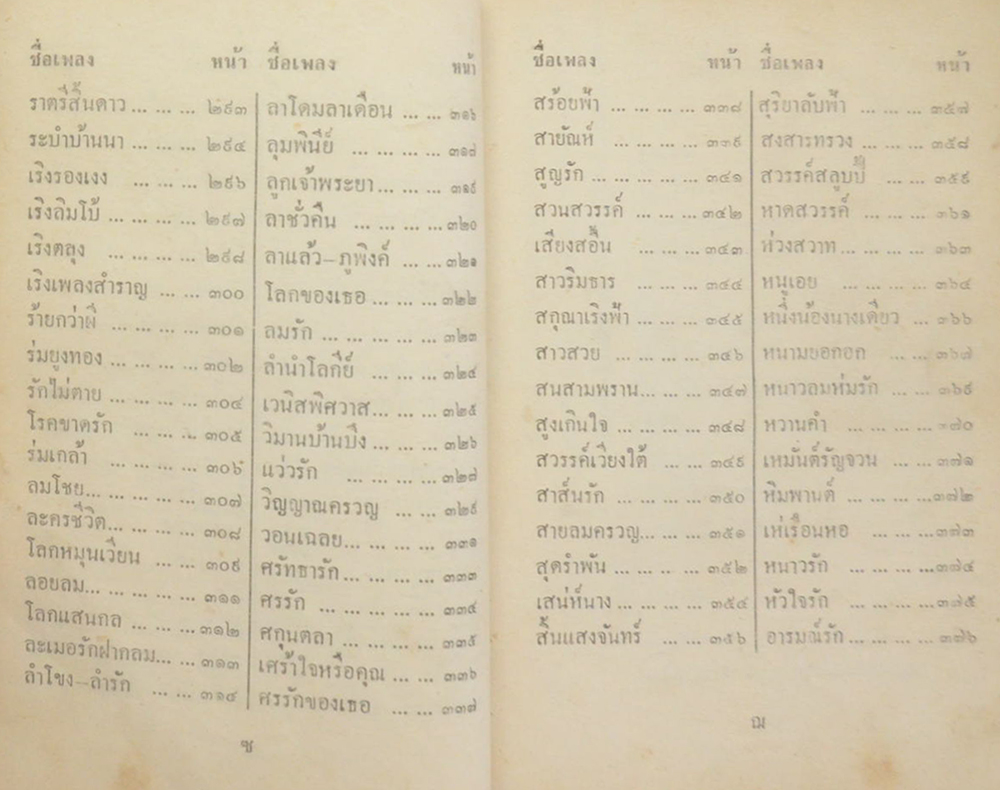 ชื่อเพลง หน้า
ราตรีสิ้นดาว ... ... ... ๒๙๓
ระบำบ้านนา ... ... ... ๒๙๔
เริงรองเงง ... ... ... ๒๙๖
เริงลิมโบ้ ... ... ... ๒๙๗
เริงตลุง ... ... ... ๒๙๘
เริงเพลงสำราญ ... ... ๓๐๐
ร้ายกว่าผี ... ... ... ๓๐๑
ร่มยูงทอง ... ... ... ๓๐๒
รักไม่ตาย ... ... ... ๓๐๔
โรคขาดรัก ... ... ... ๓๐๕
ร่มเกล้า ... ... ... ๓๐๖
ลมโชย... ... ... ... ๓๐๗
ละครชีวิต... ... ... ๓๐๘
โลกหมุนเวียน ... ... ๓๐๙
ลอยลม... ... ... ... ๓๑๑
โลกแสนกล ... ... ... ๓๑๒
ละเมอรักฝากลม... ... ๓๑๓
ลำโขง-ลำรัก ... ... ๓๑๔
ซ
ชื่อเพลง หน้า
ลาโดมลาเดือน ... ... ๓๑๖
ลุมพินีย์ ... ... ... ๓๑๘
ลูกเจ้าพระยา... ... ... ๓๑๙
ลาชั่วคืน ... ... ... ๓๒๐
ลาแล้ว-ภูพิงค์ ... ... ๓๒๑
โลกของเธอ ... ... ... ๓๒๒
ลมรัก ... ... ... ... ๓๒๓
ลำนำโลกีย์ ... ... ... ๓๒๔
เวนิสพิศวาส... ... ... ๓๒๕
วิมานบ้านบึง ... ... ... ๓๒๖
แว่วรัก ... ... ... ๓๒๘
วิญญาณครวญ ... ... ๓๒๙
วอนเฉลย... ... ... ... ๓๓๑
ศรัทธารัก... ... ... ... ๓๓๓
ศรรัก ... ... ... ... ๓๓๔
ศกุนตลา ... ... ... ... ๓๓๕
เศร้าใจหรือคุณ ... ... ๓๓๖
ศรรักของเธอ ... ... ๓๓๗
ชื่อเพลง หน้า
สร้อยฟ้า ... ... ... ... ๓๓๘
สายัณห์ ... ... ... ... ๓๓๙
สูญรัก ... ... ... ... ๓๔๑
สวนสวรรค์ ... ... ... ๓๔๒
เสียงสอื้น ... ... ... ๓๔๓
สาวริมธาร ... ... ... ๓๔๔
สกุณาเริงฟ้า ... ... ... ๓๔๕
สาวสวย ... ... ... ... ๓๔๖
สนสามพราน... ... ... ๓๔๗
สูงเกินใจ ... ... ... ๓๔๘
สวรรค์เวียงใต้ ... ... ๓๔๙
สาส์นรัก ... ... ... ... ๓๕๐
สายลมครวญ... ... ... ๓๕๑
สุดรำพัน ... ... ... ... ๓๕๒
เสน่ห์นาง ... ... ... ... ๓๕๔
สิ้นแสงจันทร์ ... ... ๓๕๖
ฌ
ชื่อเพลง หน้า
สุริยาลับฟ้า ... ... ... ๓๕๗
สงสารทรวง ... ... ... ๓๕๘
สวรรค์สลูบบี้ ... ... ๓๕๙
หาดสวรรค์ ... ... ... ๓๖๑
ห่วงสวาท... ... ... ... ๓๖๓
หนูเอย ... ... ... ... ๓๖๔
หนึ่งน้องนางเดียว ... ๓๖๖
หนามยอกอก ... ... ๓๖๗
หนาวลมห่มรัก ... ... ๓๖๙
หวานคำ ... ... ... ๓๗๐
เหมันต์รัญจวน ... ... ๓๗๑
หิมพานต์ ... ... ... ...๓๗๒
เห่เรือนหอ ... ... ...๓๗๓
หนาวรัก ... ... ... ...๓๗๔
หัวใจรัก ... ... ... ...๓๗๕
อารมณ์รัก... ... ... ... ๓๗๖